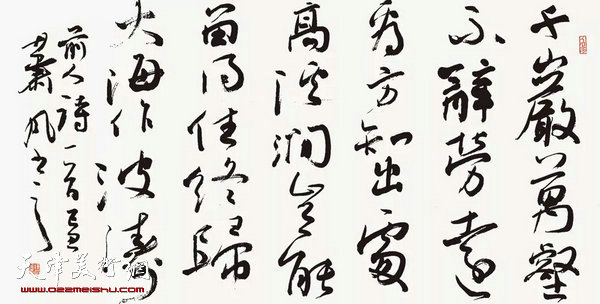 千巖萬壑
不辭勞遠
看方知出處
高溪澗豈能
留得住終歸
大海作波濤
前人詩一首
蕭風書之
天津美術網
www.022meishu.com